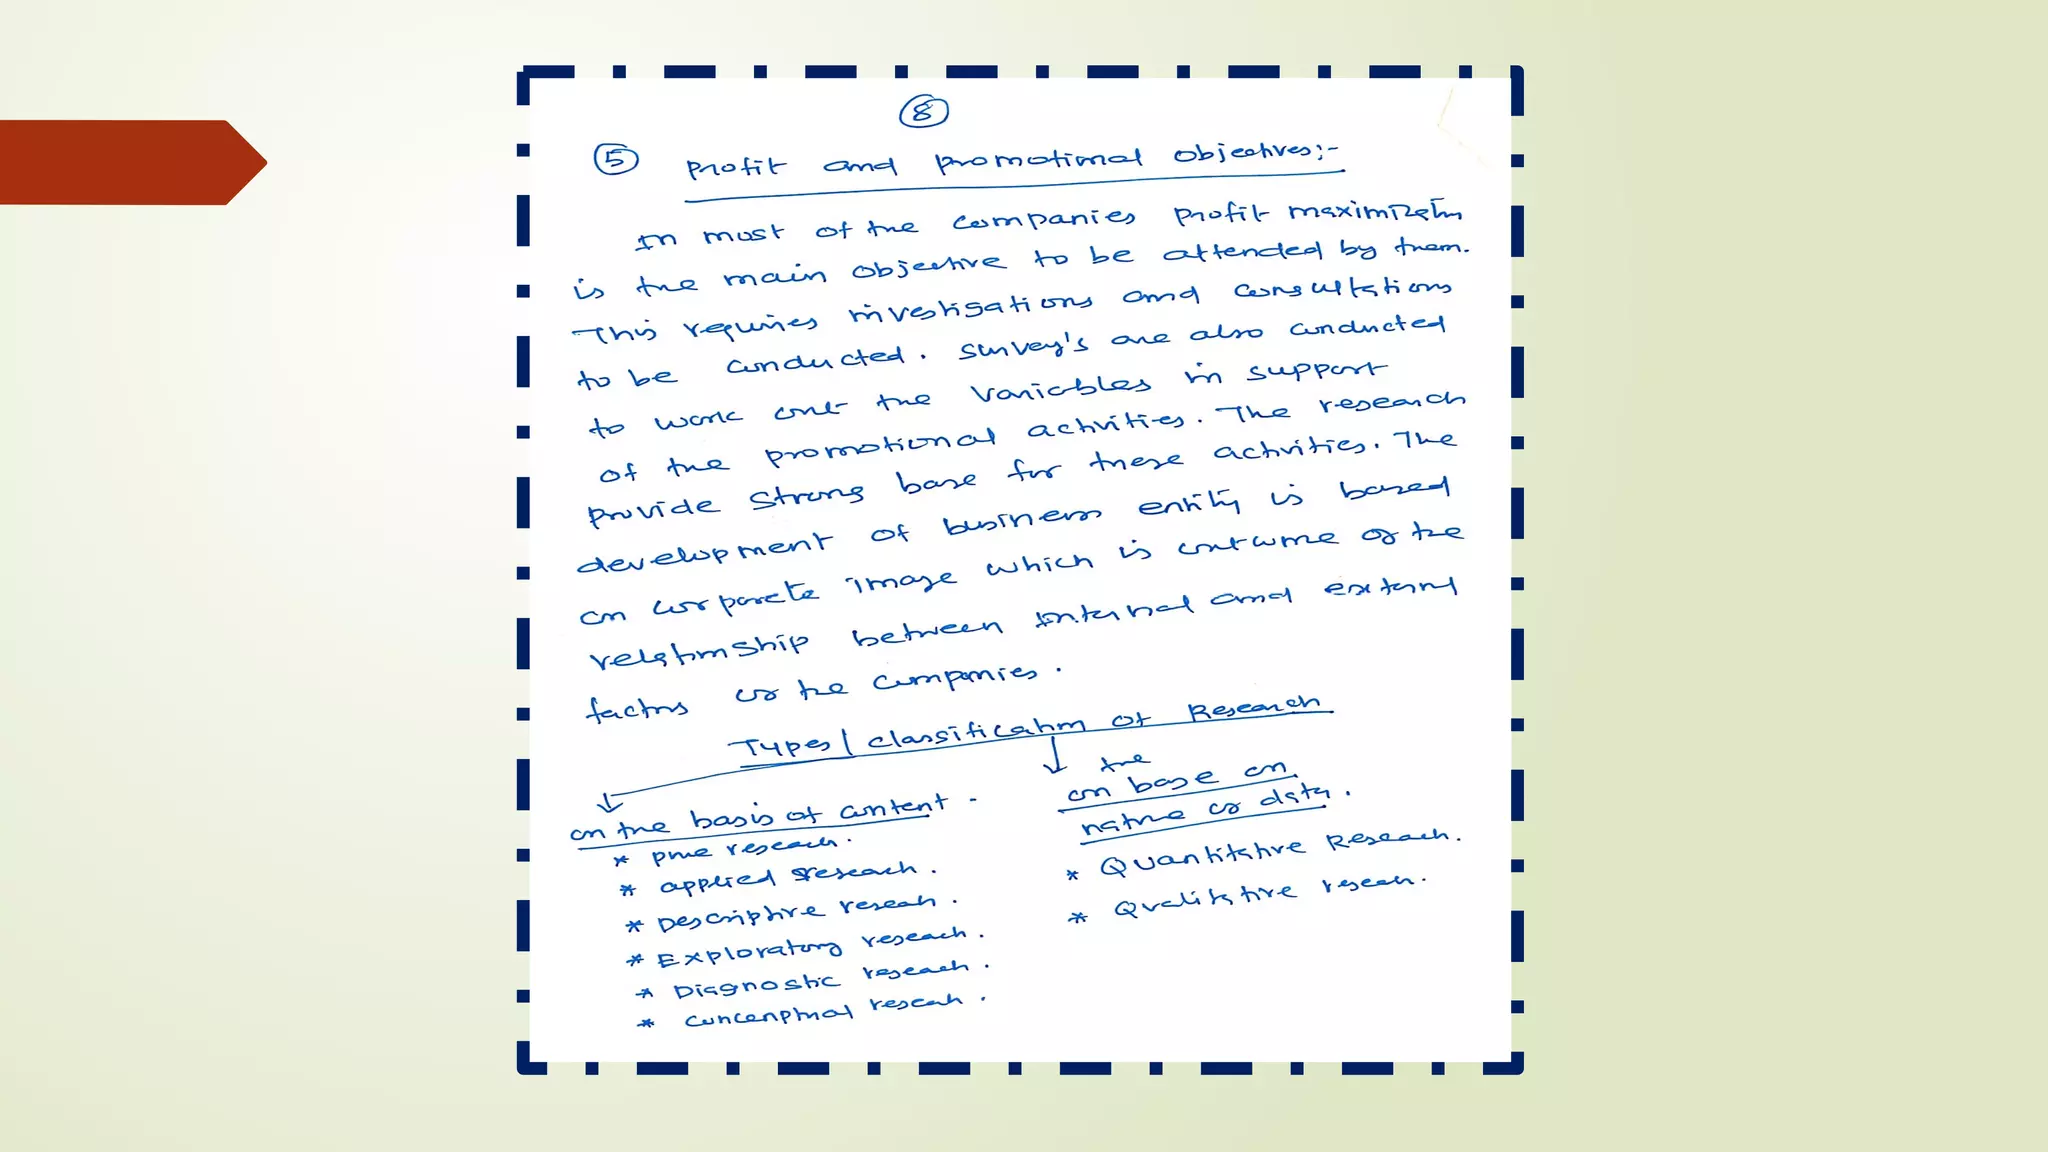 8
5 Profit and promotional objectives:-
In most of the companies profit maximization
is the main objective to be attended by them.
This requires investigations and consultations
to be conducted. survey's are also conducted
to work out the variables in support
of the promotional activities. The research
provide strong base for these activities. The
development of business entity is based
on corporate image which is outcome of the
relationship between internal and external
factors of the companies.
Types/classification of Research
on the basis of content.
* pure research.
* applied research.
* Descriptive research.
* Exploratory research.
* Diagnostic research.
* concenptual research.
the
on base on
nature of data.
* Quantitative Research.
* Qualitative research.